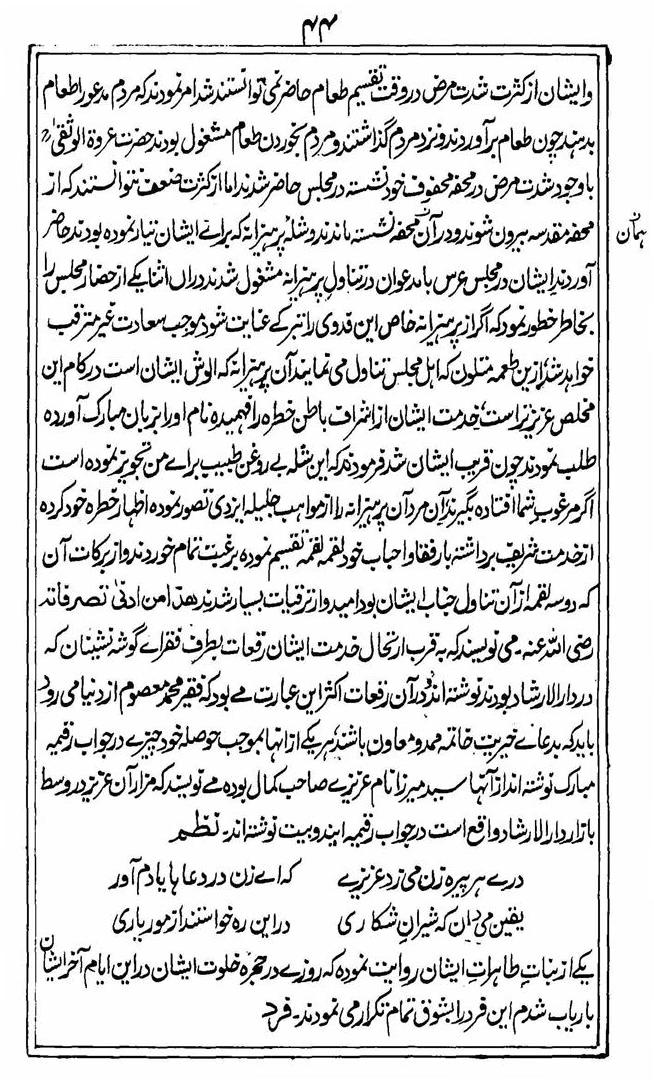 ۴۴
وایشان از کثرت شدت مرض در وقت تقسیم طعام حاضر نمی توانستند شد امر نمودند که مردم مدعو را طعام
بدهند چون طعام برآوردند و نزد مردم گذاشتند و مردم بخوردن طعام مشغول بودند حضرت عروة الوثقیٰ رض
باوجود شدت مرض در محفه محفوف خود نشسته در مجلس حاضر شدند اما از کثرت ضعف نتوانستند که از
محفه مقدسه بیرون شوند و در آن محفه نشسته ماندند و شله پرهیزانه که برائے ایشان تیار نموده بودند حاضر
همان
آوردند ایشان در مجلس عرس با مدعوان در تناول پرهیزانه مشغول شدند دران اثنا یکے از حضار مجلس را
بخاطر خطور نمود که اگر از پرهیزانه خاص این فدوی را تبرکے عنایت شود موجب سعادت غیر مترقب
خواهد شد ازین طعمه متلون که اهل مجلس تناول می نمایند آن پرهیزانه که الوش ایشان است در کام این
مخلص عزیز تر است، خدمت ایشان از اشراف باطن خطره را فهمیده نام او را بزبان مبارک آورده
طلب نمودند چون قریب ایشان شد فرمودند که این شله بے روغن طبیب برائے من تجویز نموده است
اگر مرغوب شما افتاده بگیرند آن مرد آن پرهیزانه را از مواهب جلیله ایزدی تصور نموده اظهار خطره خود کرده
از خدمت شریف برداشته با رفقا و احباب خود لقمه لقمه تقسیم نموده برغبت تمام خوردند و از برکات آن
که دو سه لقمه از آن تناول جناب ایشان بود امیدوار ترقیات بسیار شدند هذا من ادنیٰ تصرفاته
رضی الله عنه۔ می نویسند که به قرب ارتحال خدمت ایشان رقعات بطرف فقرائے گوشه نشینان که
در دار الارشاد بودند نوشته اند در آن رقعات اکثر این عبارت مے بود که فقیر محمد معصوم از دنیا می رود
باید که بدعائے خیریت خاتمه ممد و معاون باشند هر یکے از آنها بموجب حوصله خود چیزے در جواب رقیمه
مبارک نوشته اند از آنها سید میرزا نام عزیزے صاحب کمال بوده مے نویسند که مزار آن عزیز در وسط
بازار دار الارشاد واقع است در جواب رقیمه ایندو بیت نوشته اند۔ نظم
درے هر پیره زن می زد عزیزے که اے زن در دعا ها یادم آور
یقین می دان که شیران شکاری در این ره خواستند از مور یاری
یکے از بنات طاهرات ایشان روایت نموده که روزے در حجره خلوت ایشان در این ایام آخر ایشان
باریاب شدم این فرد را بشوق تمام تکرار می نمودند۔ فرد